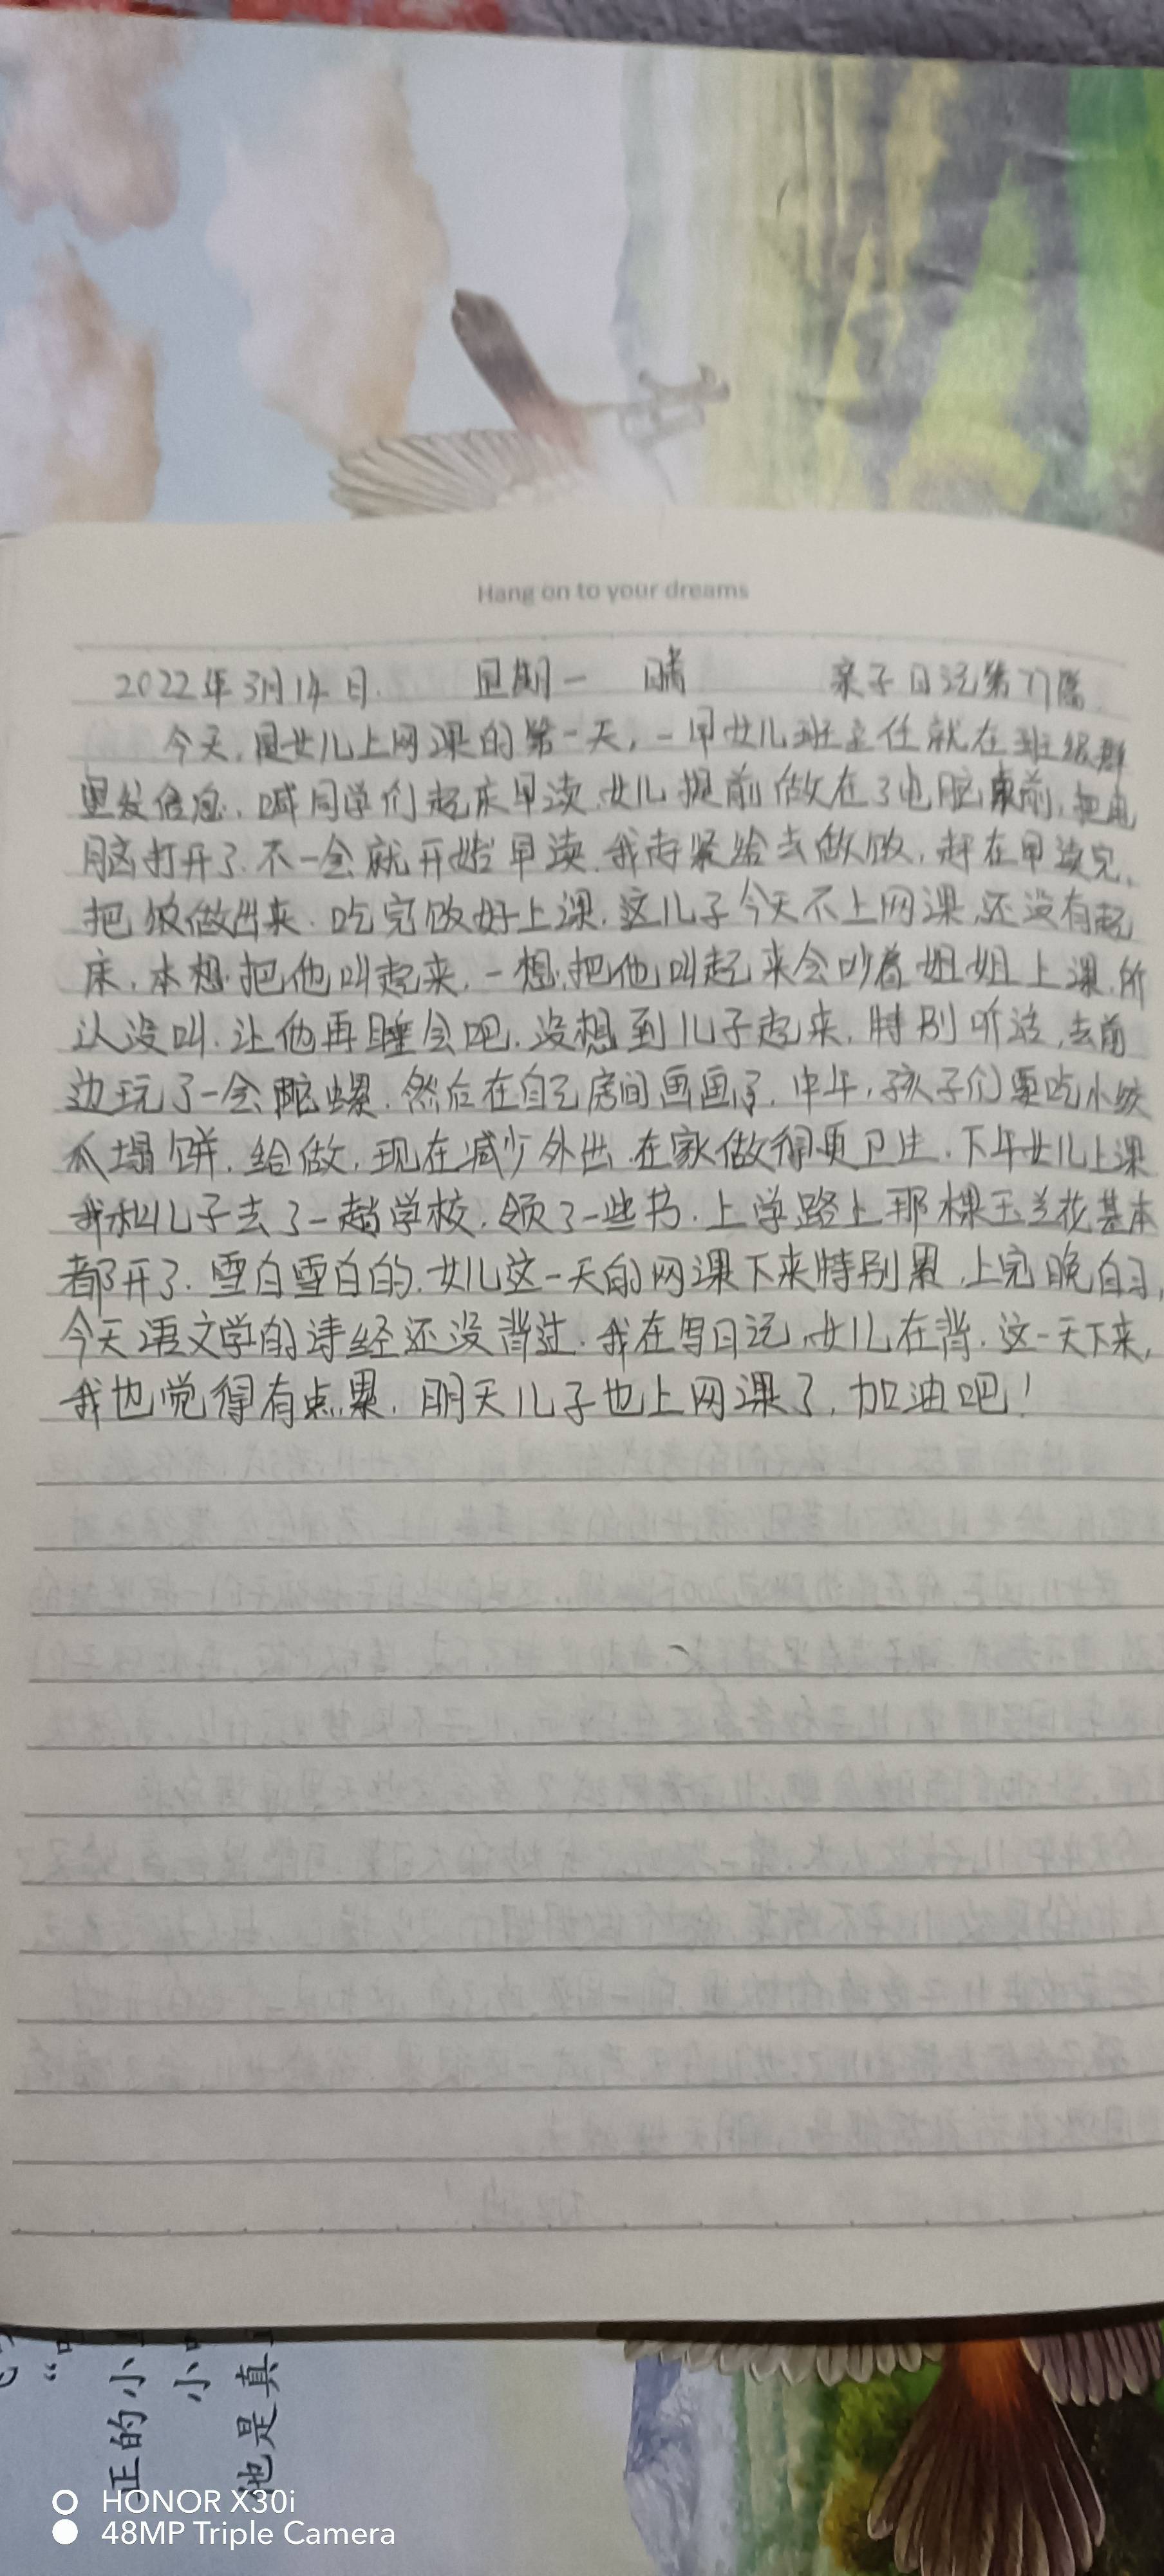 Hang on to your dreams
2022年3月14日. 星期一 晴 亲子日记第77篇
今天,是女儿上网课的第一天,一早女儿班主任就在班级群
里发信息,喊同学们起床早读.女儿提前做在了电脑桌前,把电
脑打开了.不一会就开始早读.我赶紧给去做饭,赶在早读完,
把饭做出来.吃完饭好上课.这儿子今天不上网课,还没有起
床,本想把他叫起来,一想,把他叫起来会吵着姐姐上课.所
认没叫.让他再睡会吧.没想到儿子起来,特别听话,去前
边玩了一会陀螺.然后在自己房间画画了.中午,孩子们要吃小
瓜塌饼.给做,现在减少外出.在家做得更卫生.下午女儿上课
我和儿子去了一趟学校.领了一些书.上学路上那棵玉兰花基本
都开了.雪白雪白的.女儿这一天的网课下来特别累,上完晚自习,
今天语文学的诗经还没背过.我在写日记,女儿在背.这一天下来,
我也觉得有点累.明天儿子也上网课了,加油吧!
正的小
小
他是真
HONOR X30i
48MP Triple Camera